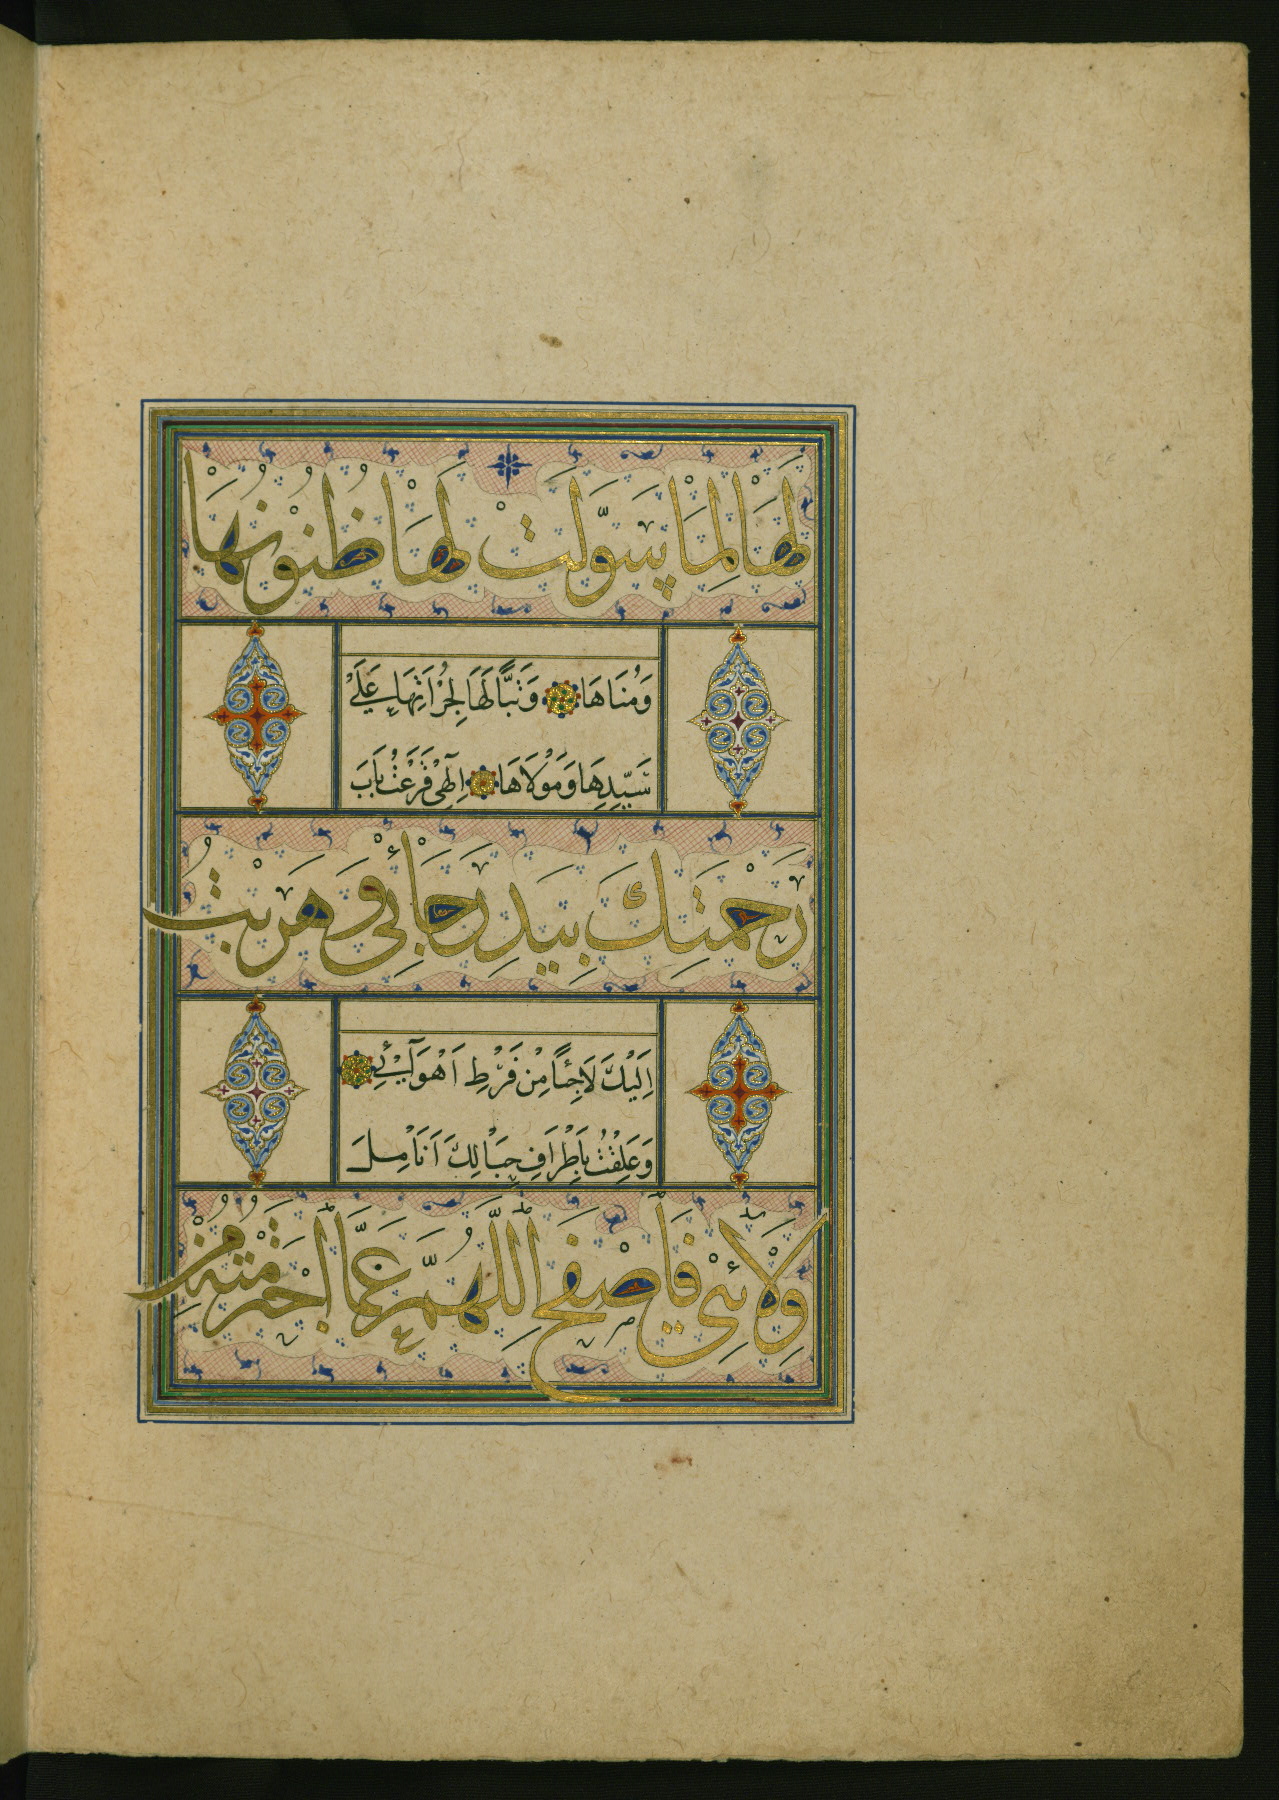 لَهَا لِمَا سَوَّلَتْ لَهَا ظُنُونُهَا
وَمُنَاهَا وَتَبًّا لَهَا لِجُرْاَتِهَا عَلَي
سَيِّدِهَا وَمَوْلَاهَا اِلٰهِي قَرَعْتُ بَابَ
رَحْمَتِكَ بِيَدِ رَجَائِي وَهَرَبْتُ
اِلَيْكَ لَاجِئًا مِنْ فَرْطِ اَهْوَآئِي
وَعَلِقْتُ بِاَطْرَافِ حِبَالِكَ اَنَامِلَ
وِلَائِي فَاصْفَحِ اللّٰهُمَّ عَمَّا اجْتَرَمْتُهُ مِنْ